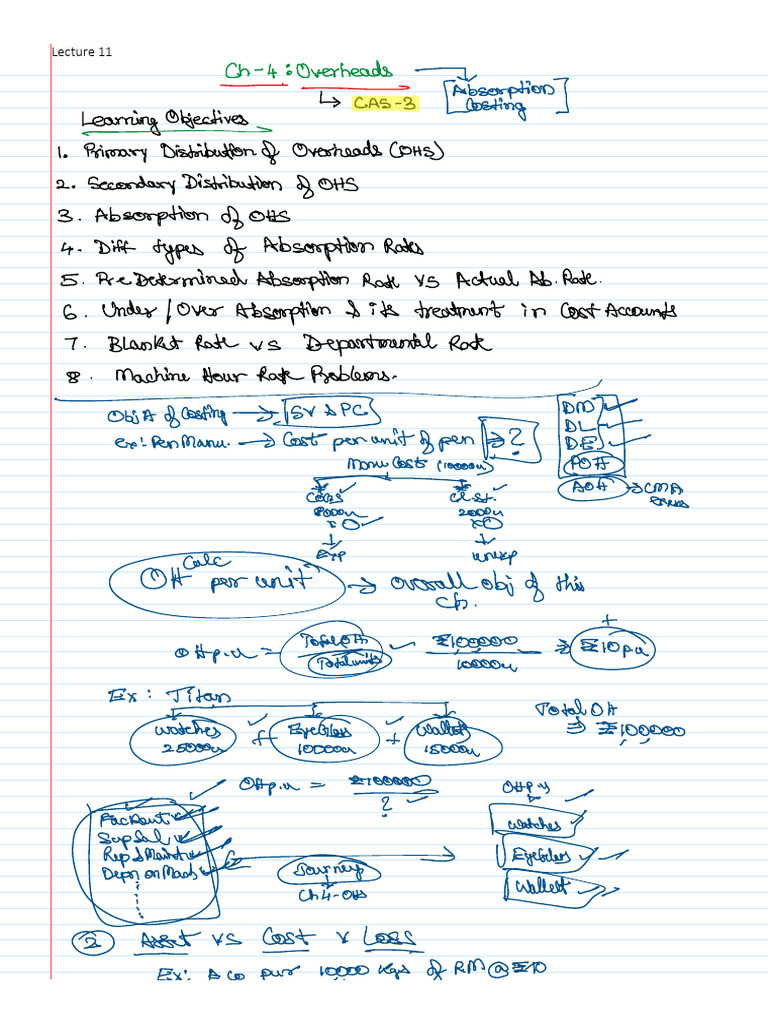 Lecture 11
Ch-4 : Overheads
Absorption Costing
CAS-3
Learning Objectives
1. Primary Distribution of Overheads (OHS)
2. Secondary Distribution of OHS
3. Absorption of OHS
4. Diff types of Absorption Rates
5. PreDetermined Absorption Rate vs Actual Ab. Rate.
6. Under / Over Absorption & its treatment in Cost Accounts
7. Blanket Rate vs Departmental Rate
8. Machine Hour Rate Problems.
Obj A of Costing → SV & PC
DM
DL
DE
POH
AOH → CMA
Ex: Pen Manu. → Cost per unit of pen → ?
Manu Cost (10000u)
COGS
8000u
Cl. St.
2000u
Exp
unexp
Calc
OH per unit → overall obj of this
ch.
OH p.u = Total OH / Total units
₹100000 / 10000u ⇒ ₹10 pu
Ex: Titan
Total OH
⇒ ₹100000
Watches
25000u
+
EyeGless
10000u
+
Wallet
15000u
OH p.u = ₹100000 / ?
OH P.u
Fac Rent
Sup Sal
Rep & Maint
Depn on Mach
Journey
Ch4-OHs
Watches
EyeGless
Wallet
2 Asset vs Cost v Loss
Ex: A Co pur 10000 Kgs of RM @ ₹10